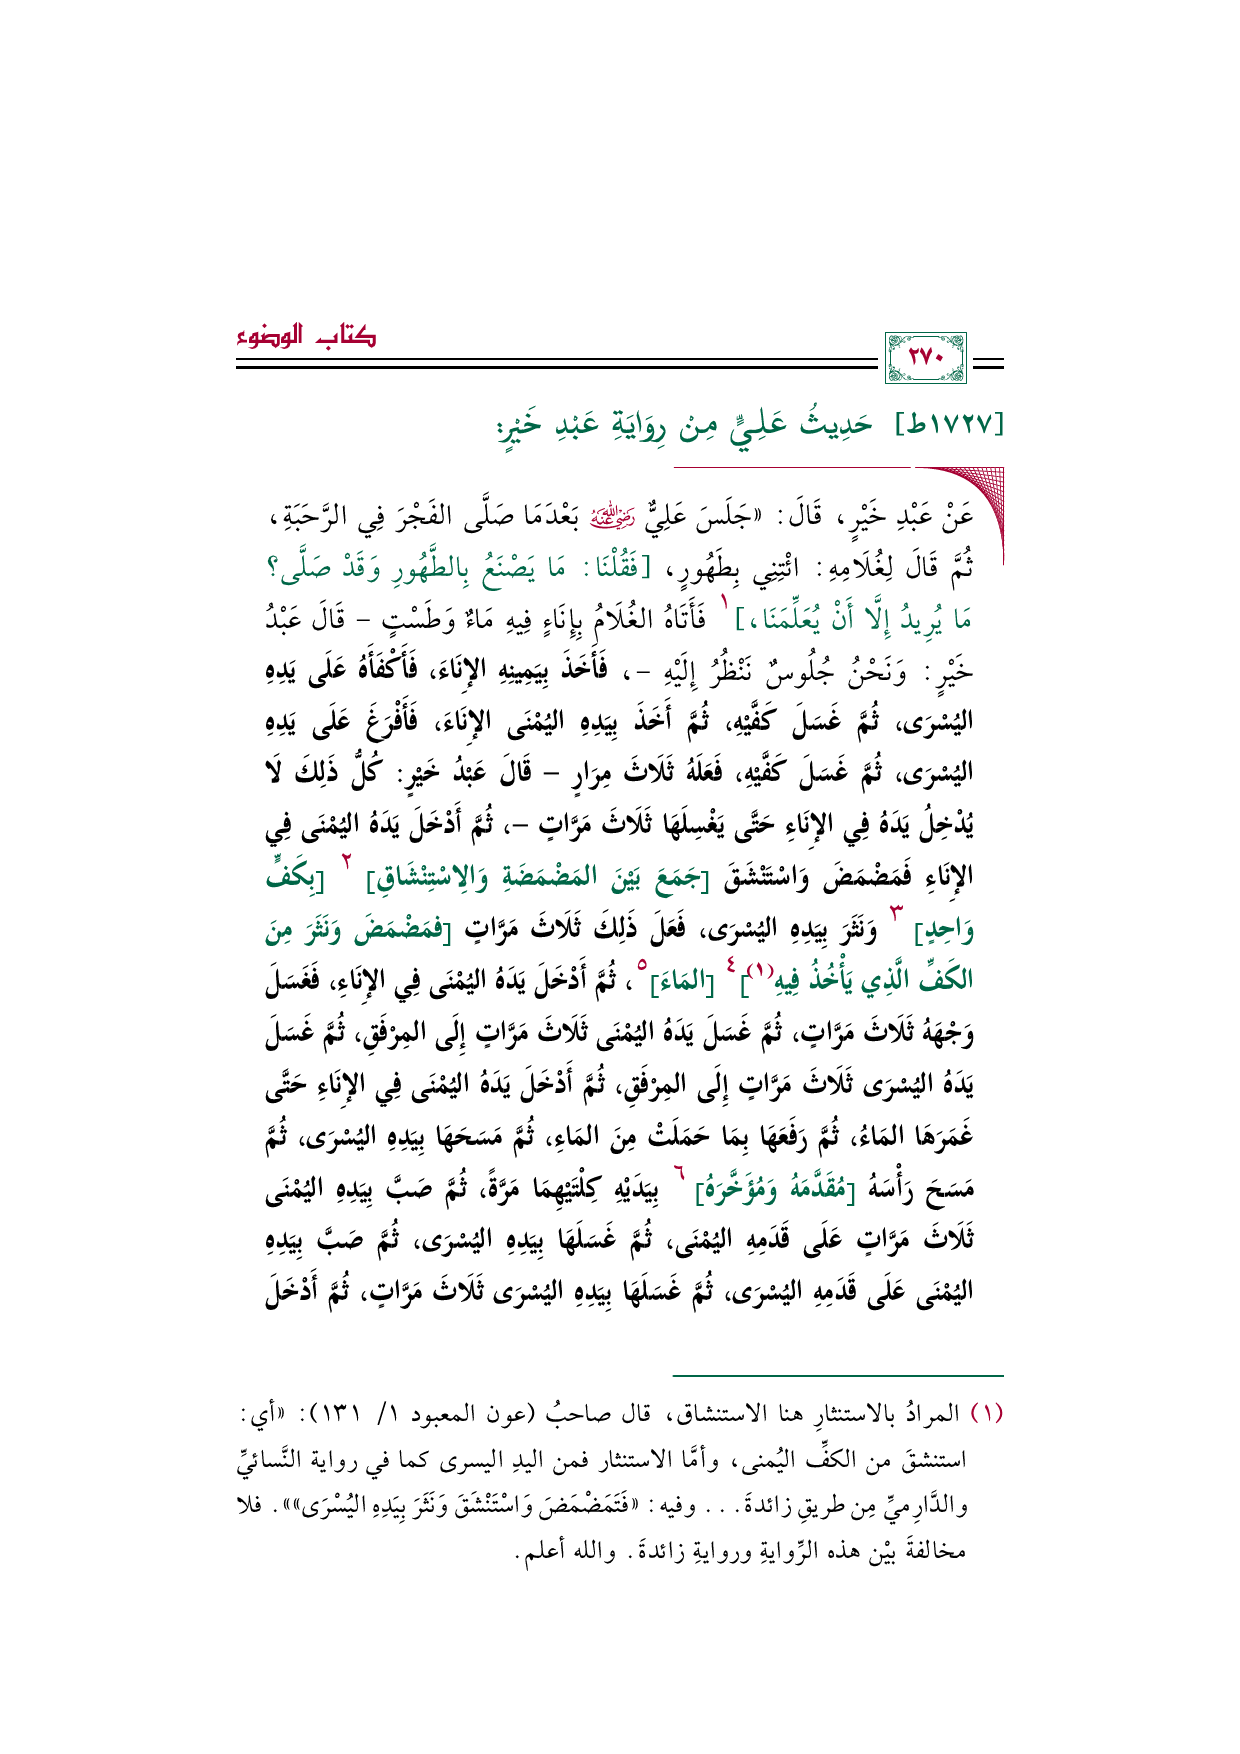 كتاب الوضوء
٢٧٠
[١٧٢٧ط] حَدِيثُ عَلِيٍّ مِنْ رِوَايَةِ عَبْدِ خَيْرٍ:
عَنْ عَبْدِ خَيْرٍ، قَالَ: «جَلَسَ عَلِيٌّ رضي الله عنه بَعْدَمَا صَلَّى الفَجْرَ فِي الرَّحَبَةِ،
ثُمَّ قَالَ لِغُلَامِهِ: ائْتِنِي بِطَهُورٍ، [فَقُلْنَا: مَا يَصْنَعُ بِالطَّهُورِ وَقَدْ صَلَّى؟
مَا يُرِيدُ إِلَّا أَنْ يُعَلِّمَنَا،]١ فَأَتَاهُ الغُلَامُ بِإِنَاءٍ فِيهِ مَاءٌ وَطَسْتٍ – قَالَ عَبْدُ
خَيْرٍ: وَنَحْنُ جُلُوسٌ نَنْظُرُ إِلَيْهِ –، فَأَخَذَ بِيَمِينِهِ الإِنَاءَ، فَأَكْفَأَهُ عَلَى يَدِهِ
اليُسْرَى، ثُمَّ غَسَلَ كَفَّيْهِ، ثُمَّ أَخَذَ بِيَدِهِ اليُمْنَى الإِنَاءَ، فَأَفْرَغَ عَلَى يَدِهِ
اليُسْرَى، ثُمَّ غَسَلَ كَفَّيْهِ، فَعَلَهُ ثَلَاثَ مِرَارٍ – قَالَ عَبْدُ خَيْرٍ: كُلُّ ذَلِكَ لَا
يُدْخِلُ يَدَهُ فِي الإِنَاءِ حَتَّى يَغْسِلَهَا ثَلَاثَ مَرَّاتٍ –، ثُمَّ أَدْخَلَ يَدَهُ اليُمْنَى فِي
الإِنَاءِ فَمَضْمَضَ وَاسْتَنْشَقَ [جَمَعَ بَيْنَ المَضْمَضَةِ وَالِاسْتِنْشَاقِ]٢ [بِكَفٍّ
وَاحِدٍ]٣ وَنَثَرَ بِيَدِهِ اليُسْرَى، فَعَلَ ذَلِكَ ثَلَاثَ مَرَّاتٍ [فمَضْمَضَ وَنَثَرَ مِنَ
الكَفِّ الَّذِي يَأْخُذُ فِيهِ(١)]٤ [المَاءَ]٥، ثُمَّ أَدْخَلَ يَدَهُ اليُمْنَى فِي الإِنَاءِ، فَغَسَلَ
وَجْهَهُ ثَلَاثَ مَرَّاتٍ، ثُمَّ غَسَلَ يَدَهُ اليُمْنَى ثَلَاثَ مَرَّاتٍ إِلَى المِرْفَقِ، ثُمَّ غَسَلَ
يَدَهُ اليُسْرَى ثَلَاثَ مَرَّاتٍ إِلَى المِرْفَقِ، ثُمَّ أَدْخَلَ يَدَهُ اليُمْنَى فِي الإِنَاءِ حَتَّى
غَمَرَهَا المَاءُ، ثُمَّ رَفَعَهَا بِمَا حَمَلَتْ مِنَ المَاءِ، ثُمَّ مَسَحَهَا بِيَدِهِ اليُسْرَى، ثُمَّ
مَسَحَ رَأْسَهُ [مُقَدَّمَهُ وَمُؤَخَّرَهُ]٦ بِيَدَيْهِ كِلْتَيْهِمَا مَرَّةً، ثُمَّ صَبَّ بِيَدِهِ اليُمْنَى
ثَلَاثَ مَرَّاتٍ عَلَى قَدَمِهِ اليُمْنَى، ثُمَّ غَسَلَهَا بِيَدِهِ اليُسْرَى، ثُمَّ صَبَّ بِيَدِهِ
اليُمْنَى عَلَى قَدَمِهِ اليُسْرَى، ثُمَّ غَسَلَهَا بِيَدِهِ اليُسْرَى ثَلَاثَ مَرَّاتٍ، ثُمَّ أَدْخَلَ
(١) المرادُ بالاستنثارِ هنا الاستنشاق، قال صاحبُ (عون المعبود ١/ ١٣١): «أي:
استنشقَ من الكفِّ اليُمنى، وأمَّا الاستنثار فمن اليدِ اليسرى كما في رواية النَّسائيِّ
والدَّارِميِّ مِن طريقِ زائدةَ... وفيه: «فَتَمَضْمَضَ وَاسْتَنْشَقَ وَنَثَرَ بِيَدِهِ اليُسْرَى»». فلا
مخالفةَ بيْن هذه الرِّوايةِ وروايةِ زائدةَ. والله أعلم.